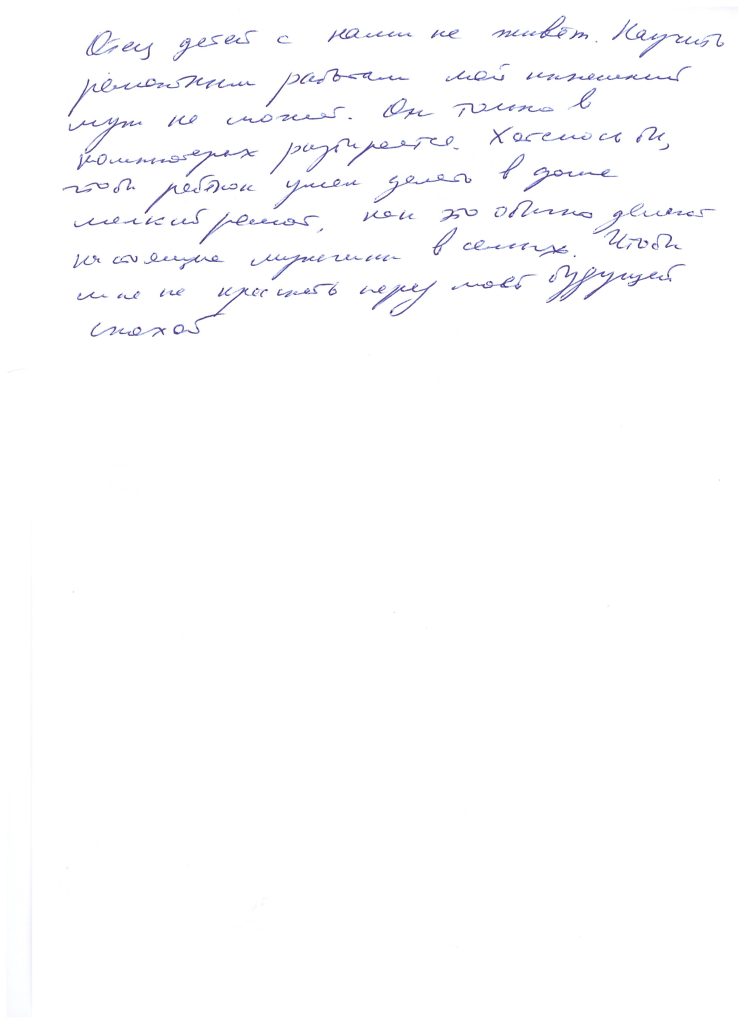 Отец детей с нами не живёт. Научить
ремонтным работам мой нынешний
муж не может. Он только в
компьютерах разбирается. Хотелось бы,
чтобы ребёнок умел делать в доме
мелкий ремонт, как это обычно делают
настоящие мужчины в семьях. Чтобы
мне не краснеть перед моей будущей
снохой